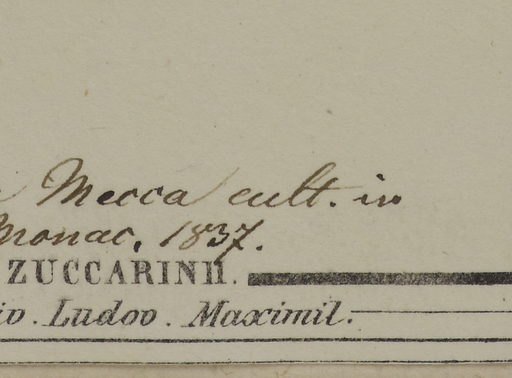 Mecca cult. in
Monac. 1837.
ZUCCARINII.
Ludov. Maximil.